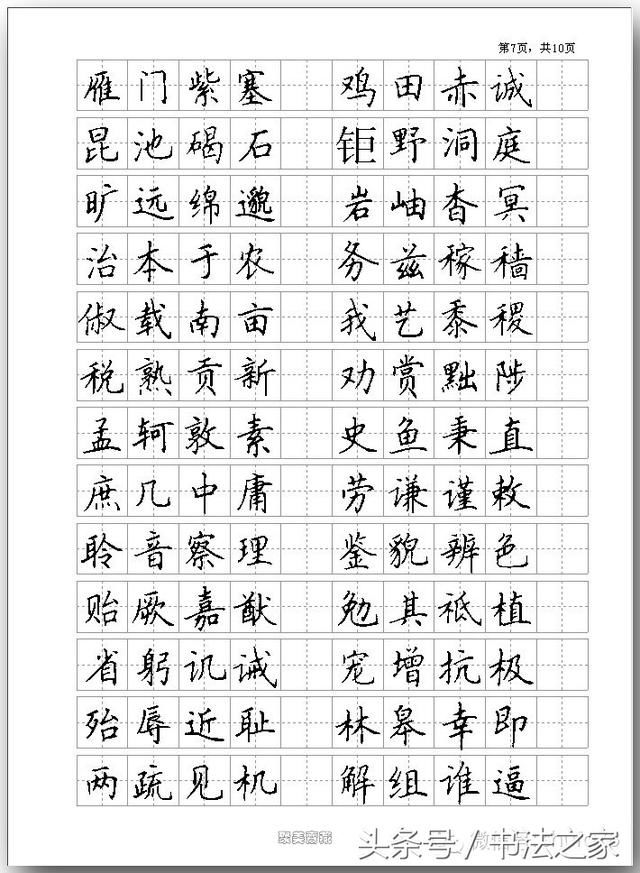 第7页，共10页
雁门紫塞 鸡田赤诚
昆池碣石 钜野洞庭
旷远绵邈 岩岫杳冥
治本于农 务兹稼穑
俶载南亩 我艺黍稷
税熟贡新 劝赏黜陟
孟轲敦素 史鱼秉直
庶几中庸 劳谦谨敕
聆音察理 鉴貌辨色
贻厥嘉猷 勉其祗植
省躬讥诫 宠增抗极
殆辱近耻 林皋幸即
两疏见机 解组谁逼
头条号／书法之家